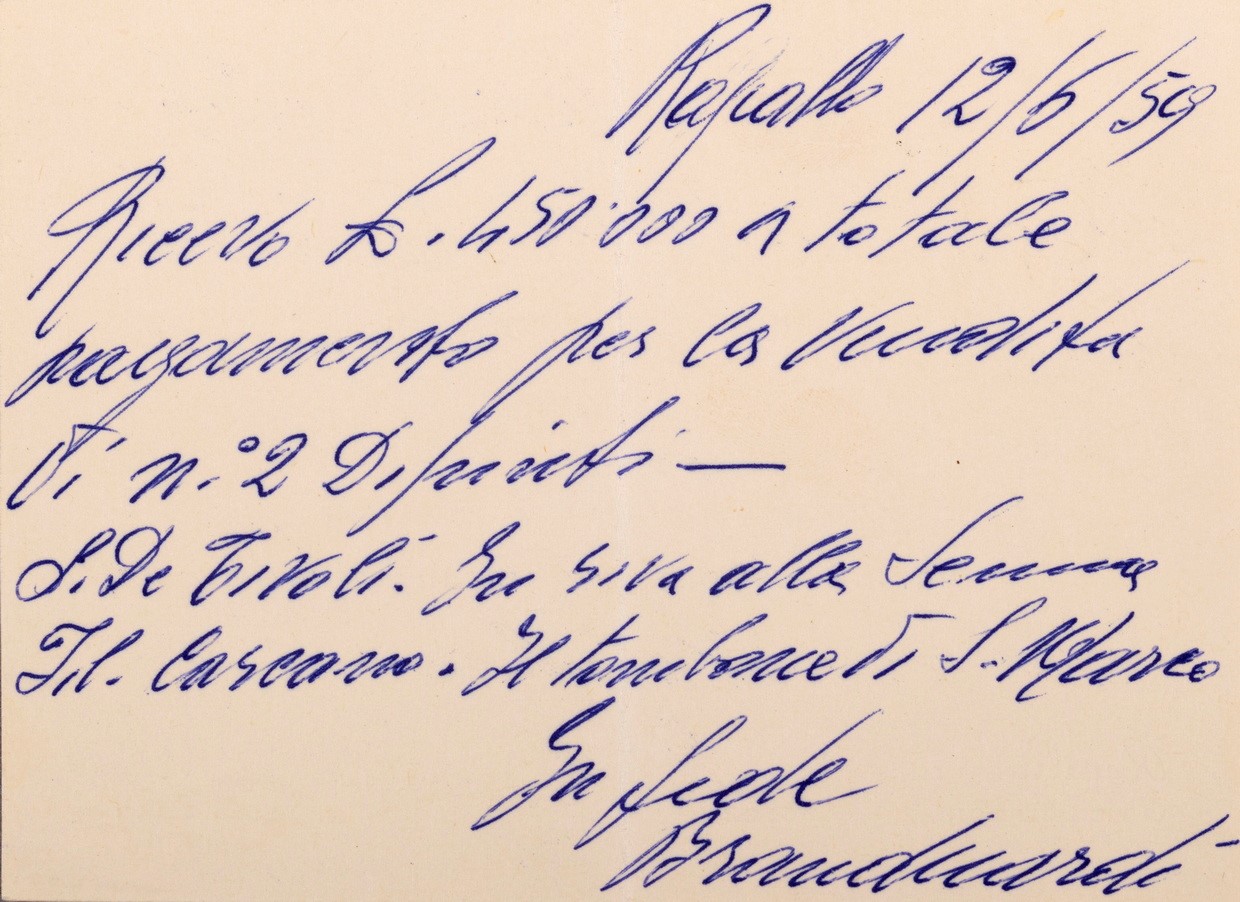 Rapallo 12/6/59
Ricevo £. 450.000 a totale
pagamento per la vendita
di n.° 2 Dipinti —
S. De Tivoli. In riva alla Senna
Fil. Carcano. Il tombone di S. Marco
In fede
Branduardi